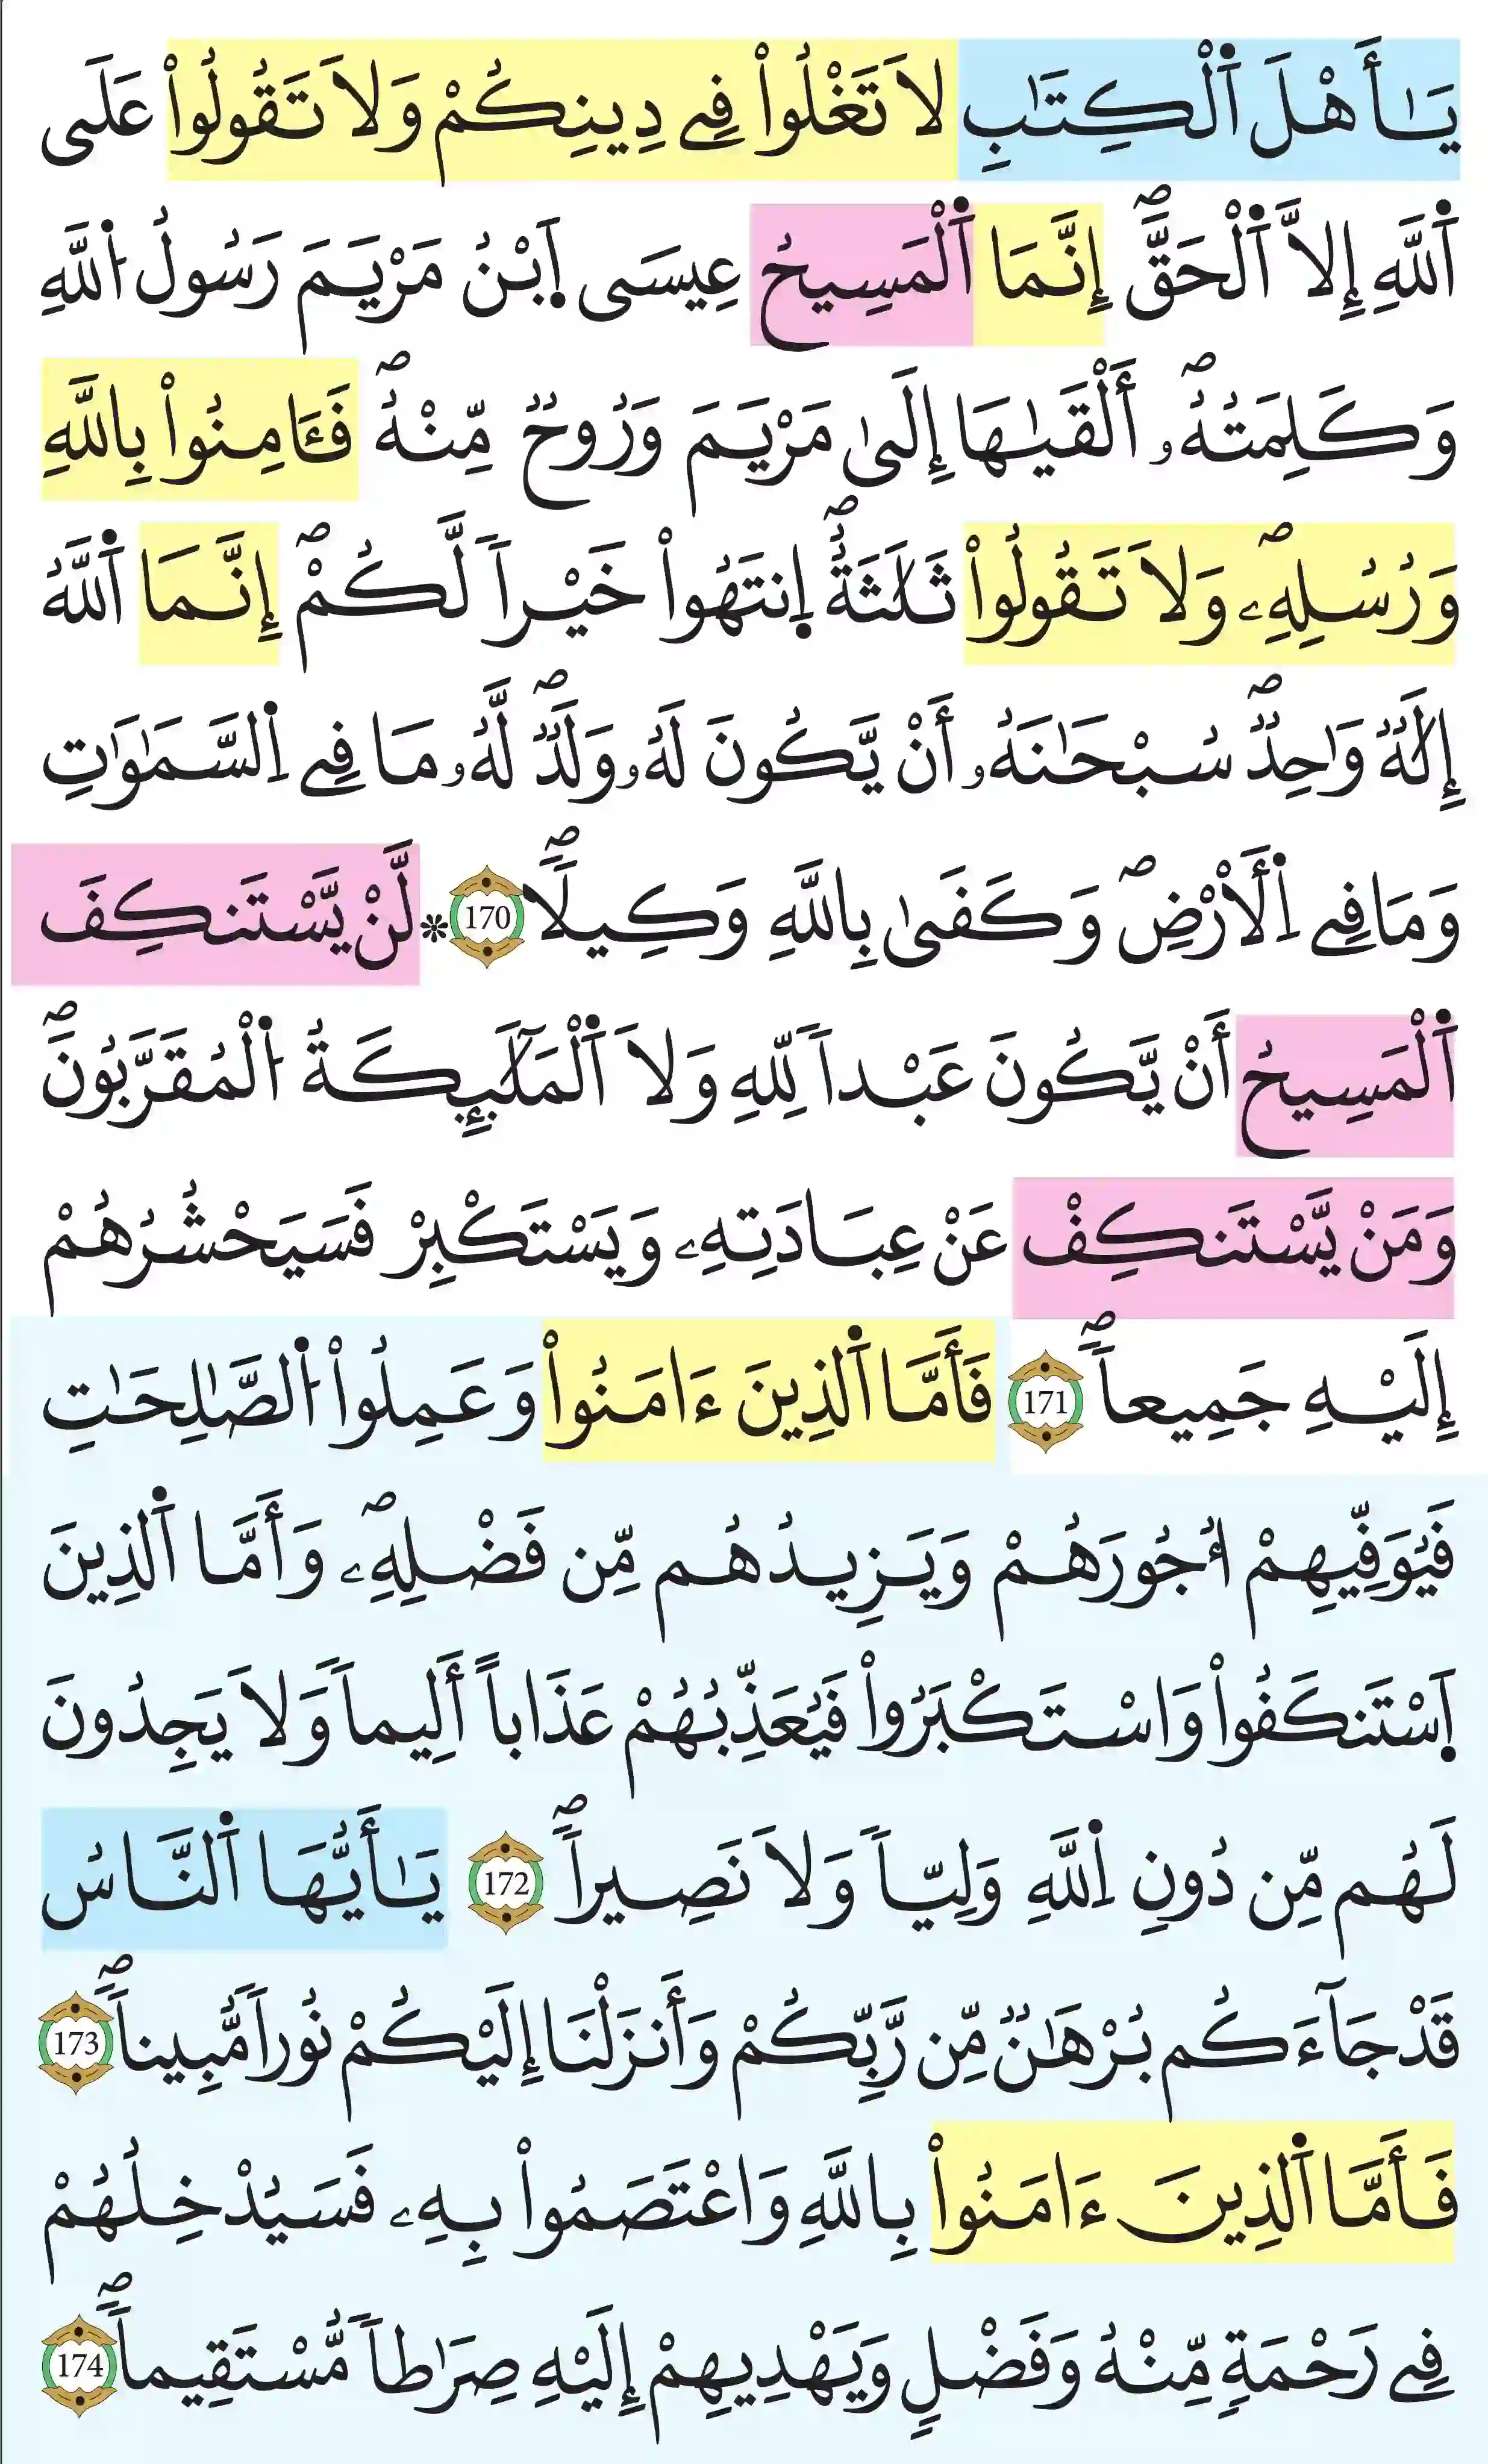 يَٰأَهْلَ ٱَلْكِتَٰبِ لَا تَغْلُواْ فِے دِينِكُمْ وَلَا تَقُولُواْ عَلَى
ٱَللَّهِ إِلَّا ٱَلْحَقَّۖ إِنَّمَا ٱَلْمَسِيحُ عِيسَى ٱِبْنُ مَرْيَمَ رَسُولُ ٱُللَّهِ
وَكَلِمَتُهُۥۖ أَلْقَيٰهَا إِلَىٰ مَرْيَمَ وَرُوحٌ مِّنْهُۖ فَـَٔامِنُواْ بِاللَّهِ
وَرُسُلِهِۦۖ وَلَا تَقُولُواْ ثَلَٰثَةٌۖ ٱِنتَهُواْ خَيْراٗ لَّكُمْۖ إِنَّمَا ٱَللَّهُ
إِلَٰهٞ وَٰحِدٞۖ سُبْحَٰنَهُۥ أَنْ يَّكُونَ لَهُۥ وَلَدٞۖ لَّهُۥ مَا فِے ٱِلسَّمَٰوَٰتِ
وَمَا فِے ٱِلْأَرْضِۖ وَكَفَىٰ بِاللَّهِ وَكِيلاٗۖ 170 * لَّنْ يَّسْتَنكِفَ
ٱَلْمَسِيحُ أَنْ يَّكُونَ عَبْداٗ لِّلهِ وَلَا ٱَلْمَلَٰٓئِكَةُ ٱُلْمُقَرَّبُونَۖ
وَمَنْ يَّسْتَنكِفْ عَنْ عِبَادَتِهِۦ وَيَسْتَكْبِرْ فَسَيَحْشُرُهُمْ
إِلَيْهِ جَمِيعاٗۖ 171 فَأَمَّا ٱَلذِينَ ءَامَنُواْ وَعَمِلُواْ ٱُلصَّٰلِحَٰتِ
فَيُوَفِّيهِمْ أُجُورَهُمْ وَيَزِيدُهُم مِّن فَضْلِهِۦۖ وَأَمَّا ٱَلذِينَ
ٱَسْتَنكَفُواْ وَاسْتَكْبَرُواْ فَيُعَذِّبُهُمْ عَذَاباً أَلِيماٗ وَلَا يَجِدُونَ
لَهُم مِّن دُونِ ٱِللَّهِ وَلِيّاٗ وَلَا نَصِيراٗۖ 172 يَٰأَيُّهَا ٱَلنَّاسُ
قَدْ جَآءَكُم بُرْهَٰنٞ مِّن رَّبِّكُمْ وَأَنزَلْنَا إِلَيْكُمْ نُوراٗ مُّبِيناٗۖ 173
فَأَمَّا ٱَلذِينَ ءَامَنُواْ بِاللَّهِ وَاعْتَصَمُواْ بِهِۦ فَسَيُدْخِلُهُمْ
فِے رَحْمَةٍ مِّنْهُ وَفَضْلٍ وَيَهْدِيهِمْ إِلَيْهِ صِرَٰطاٗ مُّسْتَقِيماٗۖ 174